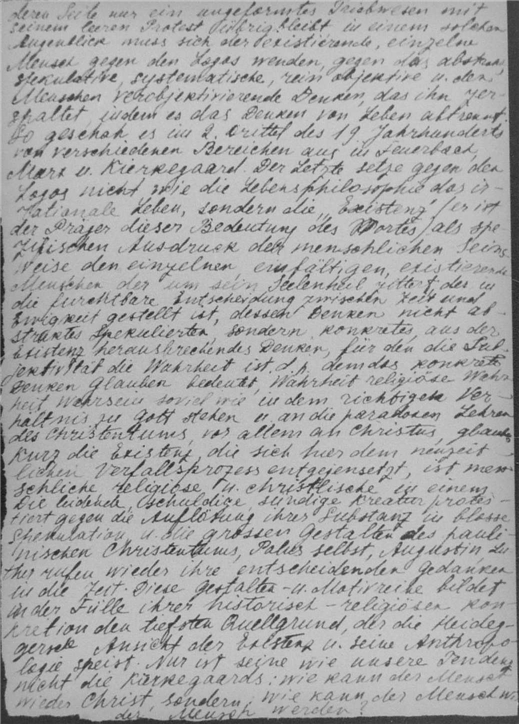 deren Seite nur ein ungeformtes Triebwesen mit
seinem leeren Protest übrigbleibt in einem solchen
Augenblick muss sich der existierende, einzelne
Mensch gegen den Logos wenden, gegen das abstrakt
spekulative, systematische, rein objektive u. den
Menschen verobjektivierende Denken, das ihn zer-
spaltet, indem es das Denken vom Leben abtrennt.
So geschah es im 2. Drittel des 19 Jahrhunderts
von verschiedenen Bereichen aus in Feuerbach,
Marx u. Kierkegaard. Der Letzte setze gegen den
Logos nicht wie die Lebensphilosophie das ir-
rationale Leben, sondern die "Existenz" (er ist
der Präger dieser Bedeutung des Wortes) als spe
zifischen Ausdruck der menschlichen Seins
Weise den einzelnen, einfältigen, existierende
Menschen der um sein Seelenheil zittert, des in
die furchtbare Entscheidung zwischen Zeit und
Ewigkeit gestellt ist, dessen Denken nicht ab-
straktes spekulierten, sondern konkretes, aus der
Existenz herausbrechendes Denken, für den die Sub-
jektivität die Wahrheit ist, d.h. dem das konkrete
Denken Glauben bedeutet, Wahrheit religiöse Wahr
heit Wahrsein soviel wie in dem richtigen Ver-
hältnis zu Gott stehen u. an die paradoxen Lehren
des Christentums, vor allem an Christus, glauben
kurz die Existenz, die sich hier dem neuzeit-
lichen Verfallsprozess entgegensetzt, ist men-
schliche religiöse u. christlische in einem
Die leidende, schuldige, sündige Kreatur protes-
tiert gegen die Auflösung ihrer Substanz in blosse
Spekulation, u. die grossen Gestalten des pauli-
nischen Christentums, selbst, Augustin Lu
ther rufen wieder ihre entscheidenden Gedanken
in die Zeit. Diese Gestalten- u. Motivreihe bildet
in der Fülle ihrer historisch-religiösen kon-
kretion den tiefsten Quellgrund, der die Heideg-
gersche Ansicht der Existenz u. seine Anthropo-
logie speist. Nur ist seine wie unsere Tendenz
nicht die Kierkegaards: wie kann der Mensch
wieder Christ, sondern: wie kann der Mensch wieder
der Mensch werden?